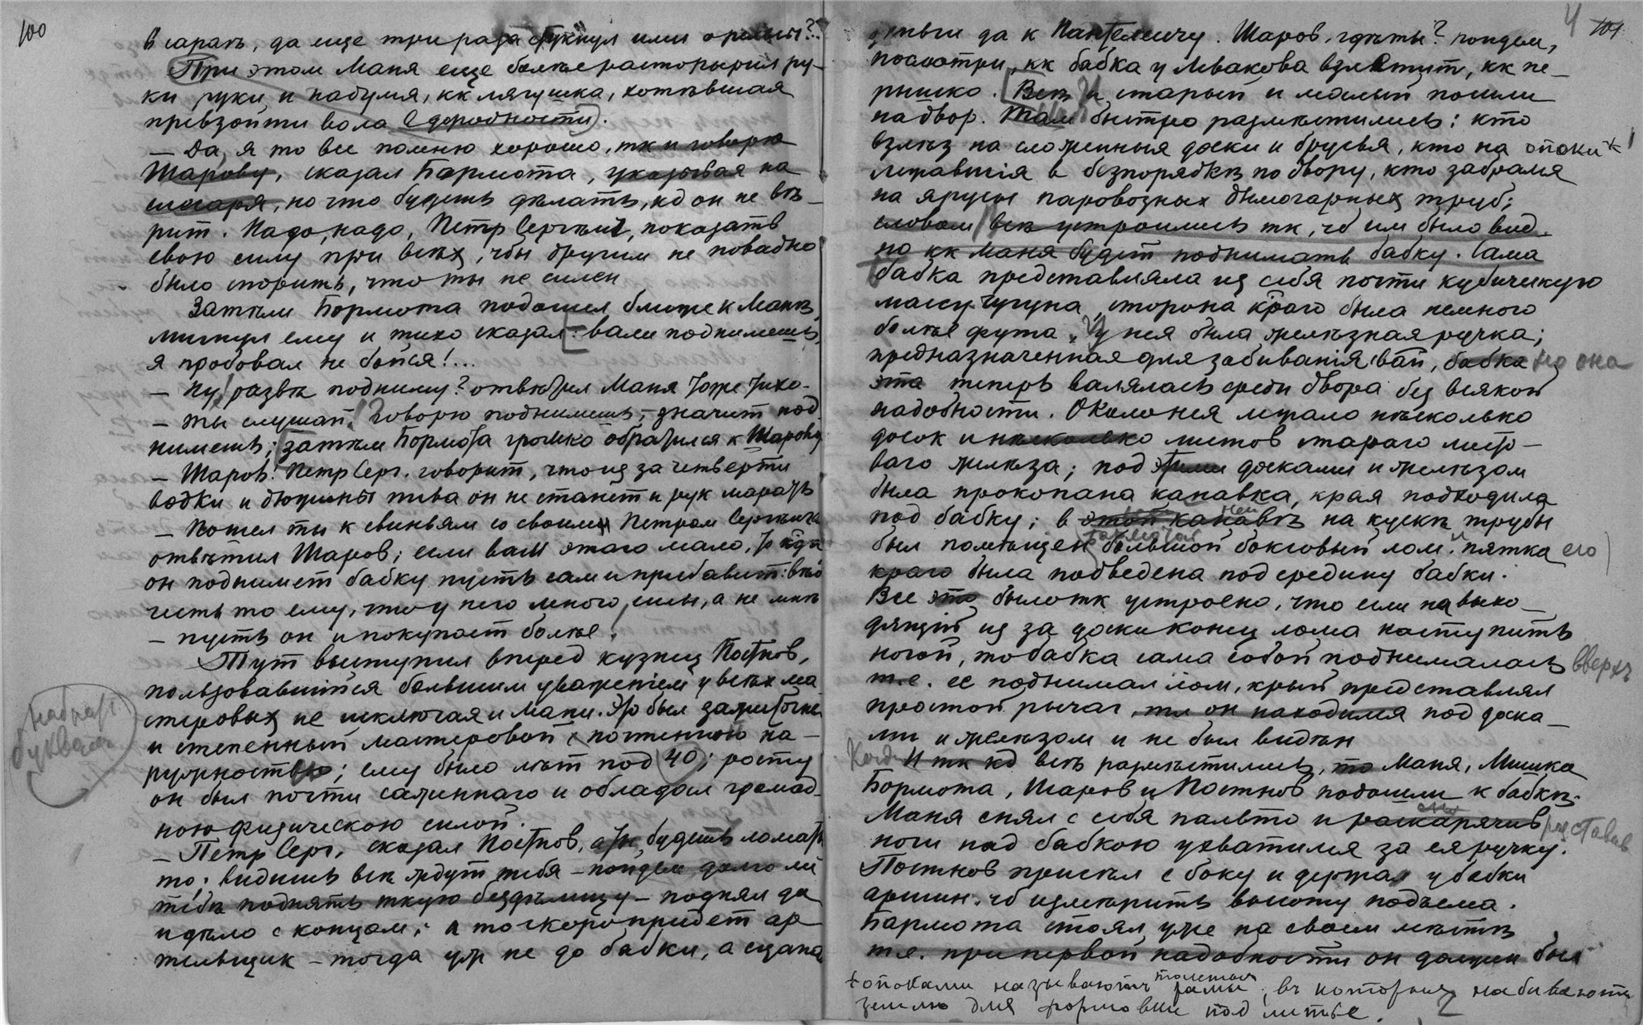 100
в сарать, да еще три раза стукнул или орешь?
При этом Маня еще болѣе растопырил ру-
ки руки и надулся, кк лягушка, хотѣвшая
превзойти вола в дородности.
— Да, я то все помню хорошо, тк и говорю
Шарову, сказал Бормота, указывая на
слесаря, но что будешь дѣлать, кд он не вѣ-
рит. Надо, надо, Петр Сергѣич, показать
свою силу при всѣх, чтбы другим не повадно
было спорить, что ты не силен
Затѣм Бормота подошел ближе к Манѣ,
мигнул ему и тихо сказал: вали поднимешь,
я пробовал не бойся!...
— Ну, развѣ подниму? отвѣтил Маня тоже тихо.
— Ты слушай! Говорю поднимешь, — значит под
нимешь; затѣм Бормота громко обратился к Шарову
— Шаров! Петр Серг. говорит, что из за четверти
водки и дюжины пива он не станет и рук марать
— Пошел ты к свиньям со своим Петром Сергѣичем
отвѣтил Шаров; если вам этого мало, то кгда
он поднимет бабку пусть сам и прибавит:
честь то ему, что у него много силы, а не мнѣ
— пусть он и покупает болѣе!
Тут выступил вперед кузнец Постнов,
пользовавшийся большим уваженіем у всѣх ма
стеровых не исключая и Мани. Это был зажиточный
и степенный мастеровой с почтенною на-
ружностью; ему было лѣт под 40; росту
он был почти саженнаго и обладал громад-
ною физическою силой.
— Петр Серг. сказал Постнов, будешь ломать
то: видишь всѣ ждут тебя — пойдем долго ли
тебѣ поднять ткую бездѣлицу — поднял да
и дѣло с концом; а то скоро придет ар
тельщик — тогда уж не до бабки, а
набрать
буквами
4 101
деньги да к Пантелеичу. Шаров, гдѣ ты? пойдем,
посмотри, кк бабка у Мвакова взлетит, кк пе-
рышко. Всѣ и старый и малый пошли
на двор. Там быстро размѣстились: кто
влѣз на сложенныя доски и брусья, кто на опоки +
лежавшія в безпорядкѣ по двору, кто забрался
на ярусы паровозных дымогарных труб;
словом всѣ устроились тк, чб им было вид-
но кк Маня будет поднимать бабку. Сама
бабка представляла из себя почти кубическую
массу чугуна, сторона краго была немного
болѣе фута. У нея была желѣзная ручка;
предназначенная для забиванія свай, бабка но она
эта теперь валялась среди двора без всякой
надобности. Около нея лежало нѣсколько
досок и нѣсколько листов стараго листо-
ваго желѣза; под этими досками и желѣзом
была прокопана канавка, края подходила
под бабку; в этой канавкѣ ней на кускѣ трубы
был помѣщен большой боксовый лом и пятка его
краго была подведена под средину бабки.
Все это было тк устроено, что если на выхо-
дящій из за доски конец лома наступить
ногой, то бабка сама собой поднималась вверхъ
т.е. ее поднимал лом, крый представлял
простой рычаг, тк он находился под доска-
ми и желѣзом и не был видѣн
Когда И тк кд всѣ размѣстились, то Маня, Мишка
Бормота, Шаров и Постнов подошли к бабкѣ.
Маня снял с себя пальто и раскарячив разставив
ноги над бабкою ухватился за ея ручку.
Постнов присѣл с боку и держал у бабки
аршин, чб измѣрить высоту подъема.
Бормота стоял уже на своем мѣстѣ
т.е. при первой надобности он должен был
+ опоками называютъ толстыя рамы, въ которыя набиваютъ
землю для формовки под литье. 2